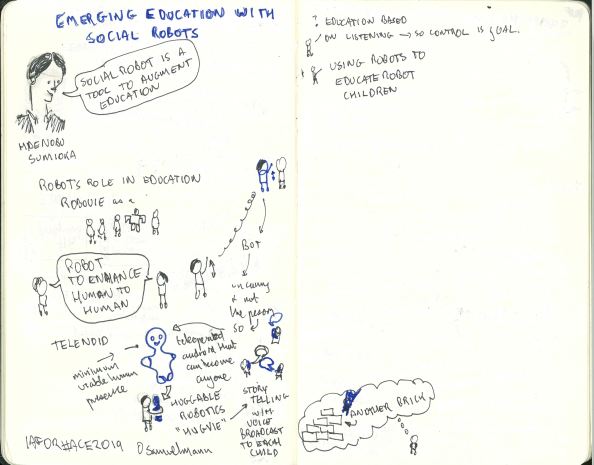 EMERGING EDUCATION WITH
SOCIAL ROBOTS
SOCIAL ROBOT IS A
TOOL TO AUGMENT
EDUCATION
HIDENOBU
SUMIOKA
ROBOT'S ROLE IN EDUCATION
ROBOVIE as a
BOT
uncanny
& not
the person
SO
ROBOT
TO ENHANCE
HUMAN TO
HUMAN
TELENOID
minimum
viable human
presence
teleoperated
android that
can become
anyone
HUGGABLE
ROBOTICS
"HUGVIE"
STORY
TELLING
WITH
VOICE
BROADCAST
TO EACH
CHILD
IAFOR #ACE2019
@samuelmann
? EDUCATION BASED
ON LISTENING → SO CONTROL IS GOAL.
USING ROBOTS TO
EDUCATE ROBOT
CHILDREN
ANOTHER BRICK